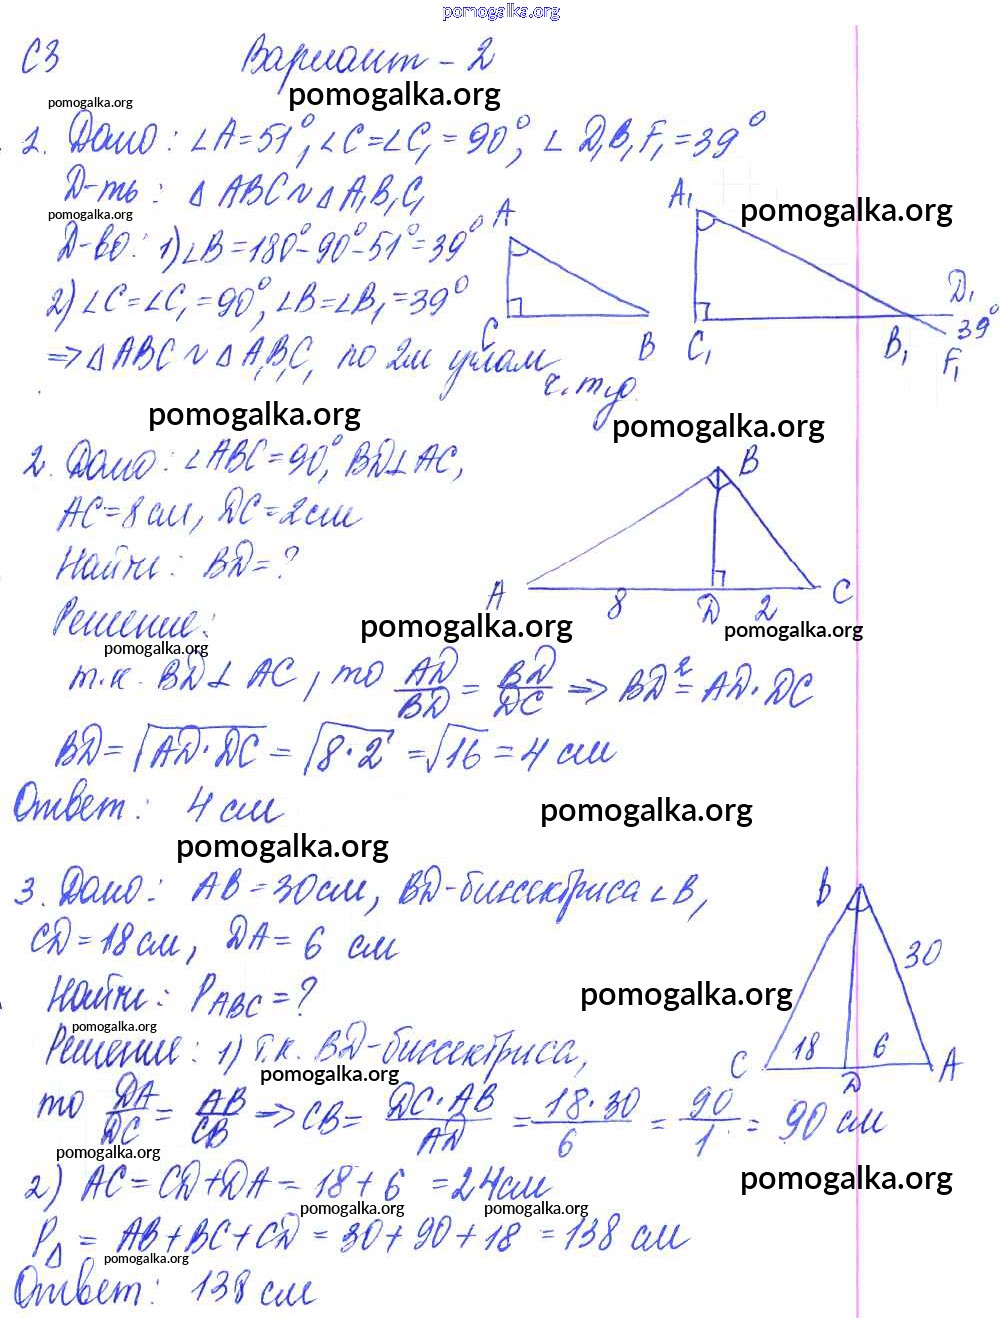 pomogalka.org
С3 Вариант - 2
pomogalka.org pomogalka.org
1. Дано: ∠A = 51°, ∠C = ∠C₁ = 90°, ∠D₁B₁F₁ = 39°
Д-ть: △ ABC ~ △ A₁B₁C₁
pomogalka.org pomogalka.org
Д-во: 1) ∠B = 180° - 90° - 51° = 39°
2) ∠C = ∠C₁ = 90°, ∠B = ∠B₁ = 39°
⇒ △ ABC ~ △ A₁B₁C₁ по 2м углам
ч.т.д.
A
C
B
A₁
C₁
B₁
D₁
39°
F₁
pomogalka.org
pomogalka.org
2. Дано: ∠ABC = 90°, BD ⊥ AC,
AC = 8 см, DC = 2 см
Найти: BD = ?
Решение:
B
A 8 D 2 C
pomogalka.org pomogalka.org
pomogalka.org
т.к. BD ⊥ AC, то AD/BD = BD/DC ⇒ BD² = AD · DC
BD = √AD · DC = √8 · 2 = √16 = 4 см
Ответ: 4 см
pomogalka.org
pomogalka.org
3. Дано: AB = 30 см, BD - биссектриса ∠B,
CD = 18 см, DA = 6 см
Найти: P ABC = ?
B
30
C 18 D 6 A
pomogalka.org
pomogalka.org
Решение: 1) Т.к. BD - биссектриса,
pomogalka.org
то DA/DC = AB/CB ⇒ CB = DC · AB/AD = 18 · 30/6 = 90/1 = 90 см
pomogalka.org
2) AC = CD + DA = 18 + 6 = 24 см
pomogalka.org
pomogalka.org pomogalka.org
P△ = AB + BC + CD = 30 + 90 + 18 = 138 см
pomogalka.org
Ответ: 138 см